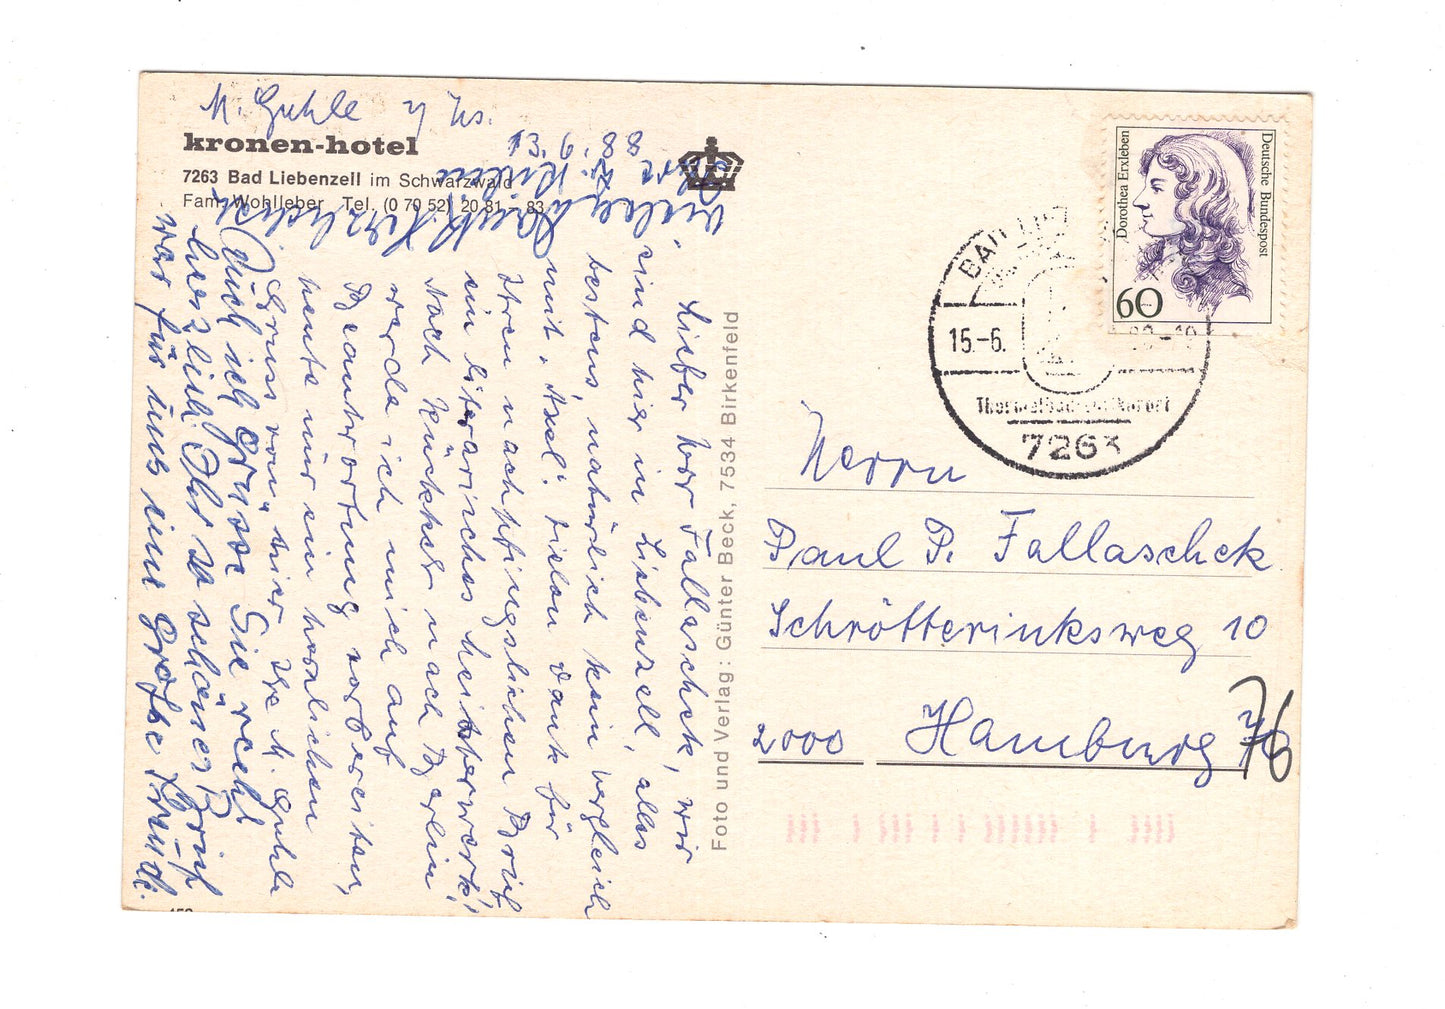 M. Guhle z. Zs.
kronen-hotel
7263 Bad Liebenzell im Schwarzwald
Fam. Wohlleber Tel. (0 70 52) 20 81 - 83
13. 6. 88
Lieber Herr Fallaschek, wir
sind hier in Liebenzell, alles
bestens, natürlich kein Vergleich
mit „Axel“. Vielen Dank für
Ihren nachpfingstlichen Brief
ein literarisches heiterwerk!
Nach Rückkehr nach Berlin
werde ich mich auf
Beantwortung vorbereiten,
heute nur ein herzlichen
Gruss von hier Ihr M. Guhle
Auch ich grüsse Sie recht
herzlich. Ihr so schöner Brief
war für uns eine große Freude.
vielen Dank. Herzlichst
Ihre
Foto und Verlag: Günter Beck, 7534 Birkenfeld
Deutsche Bundespost
Dorothea Erxleben
60
BAD
15.-6.
Thermalbad
7263
Herrn
Paul P. Fallaschek
Schrötteringksweg 10
2000 Hamburg 76